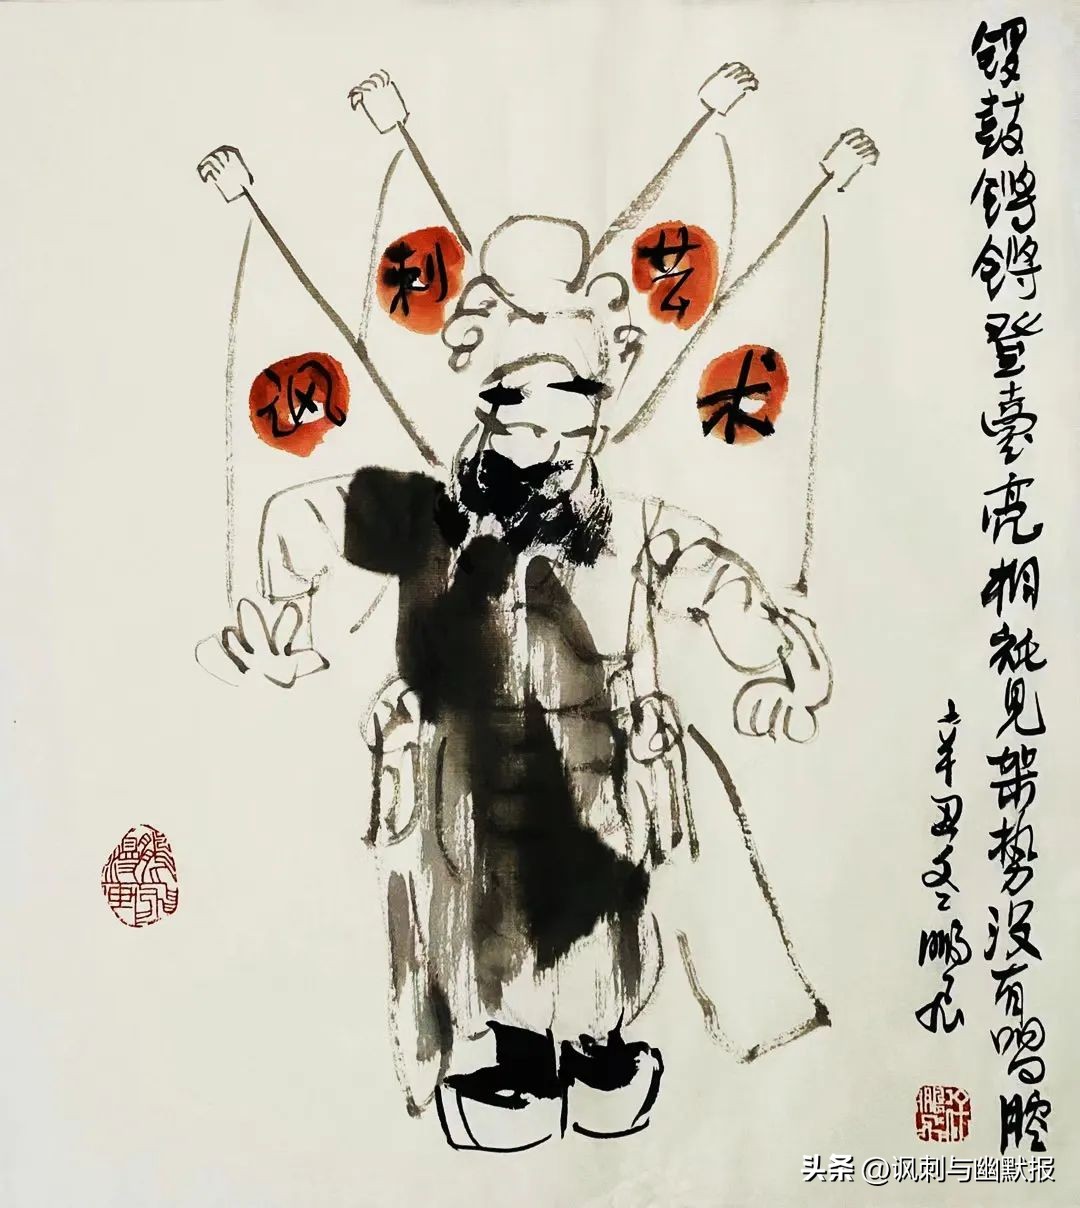 锣鼓锵锵登臺亮相祗见架势没有唱腔
辛丑冬
讽
刺
芸
术
头条 @讽刺与幽默报